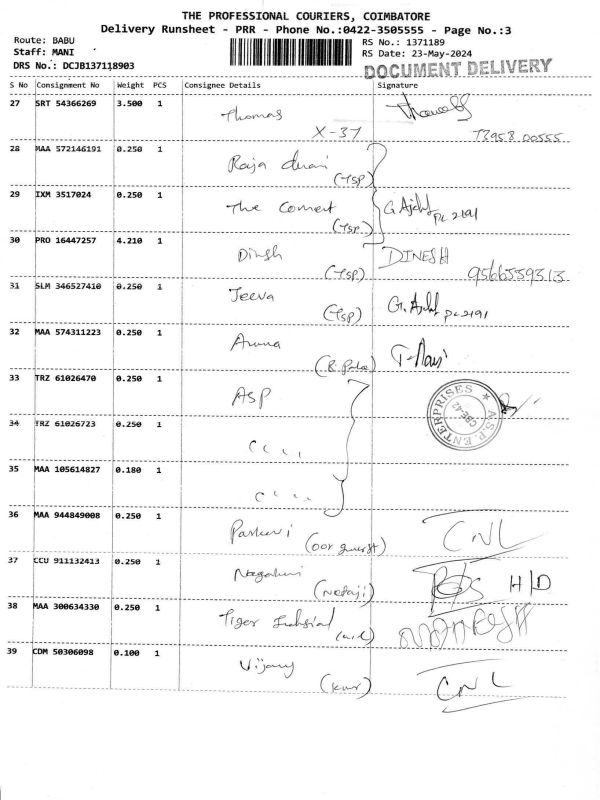 THE PROFESSIONAL COURIERS, COIMBATORE
Delivery Runsheet - PRR - Phone No.:0422-3505555 - Page No.:3
Route: BABU
Staff: MANI
DRS No.: DCJB137118903
RS No.: 1371189
RS Date: 23-May-2024
DOCUMENT DELIVERY
S No Consignment No Weight PCS Consignee Details Signature
27 SRT 54366269 3.500 1 Thomas
X-37
28 MAA 572146191 0.250 1 Raja
(TSP)
29 IXM 3517024 0.250 1 The
(TSP.) PC 2191
30 PRO 16447257 4.210 1 Dinsh DINESH
(TSP) 9566559313
31 SLM 346527410 0.250 1 Jeeva
(TSP) PC 2191
32 MAA 574311223 0.250 1 Aruna
33 TRZ 61026470 0.250 1 ASP
A.S.P. ENTERPRISES
CBE-42
34 TRZ 61026723 0.250 1 " "
35 MAA 105614827 0.180 1 " "
36 MAA 944849008 0.250 1 CNL
37 CCU 911132413 0.250 1 H/D
(Netaji)
38 MAA 300634330 0.250 1 Tiger
39 CDM 50306098 0.100 1 Vijay
CNL